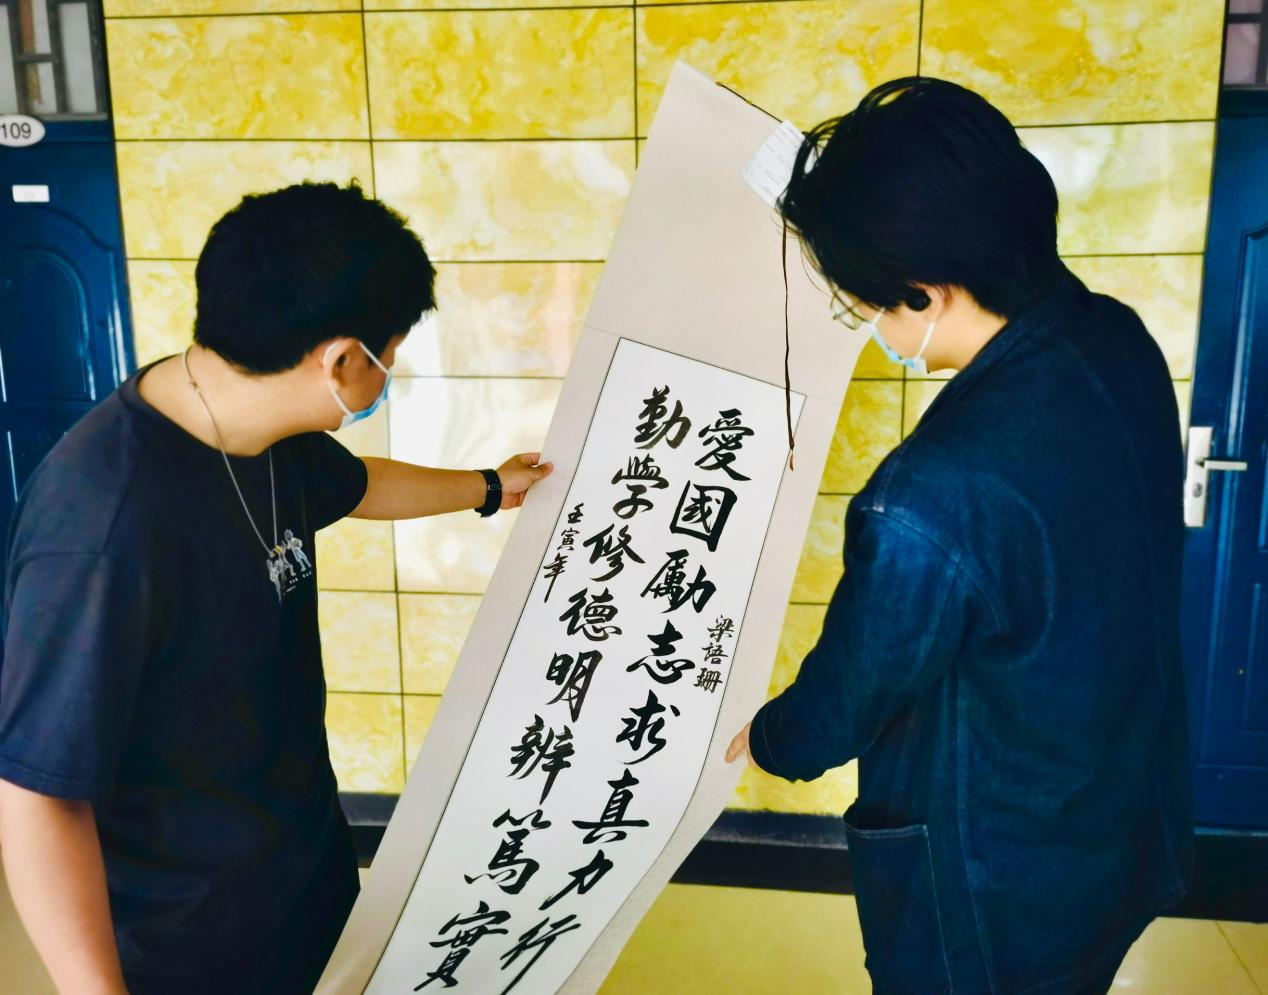 愛國勵志求真力行
勤學修德明辨篤實
壬寅年
梁語珊
109